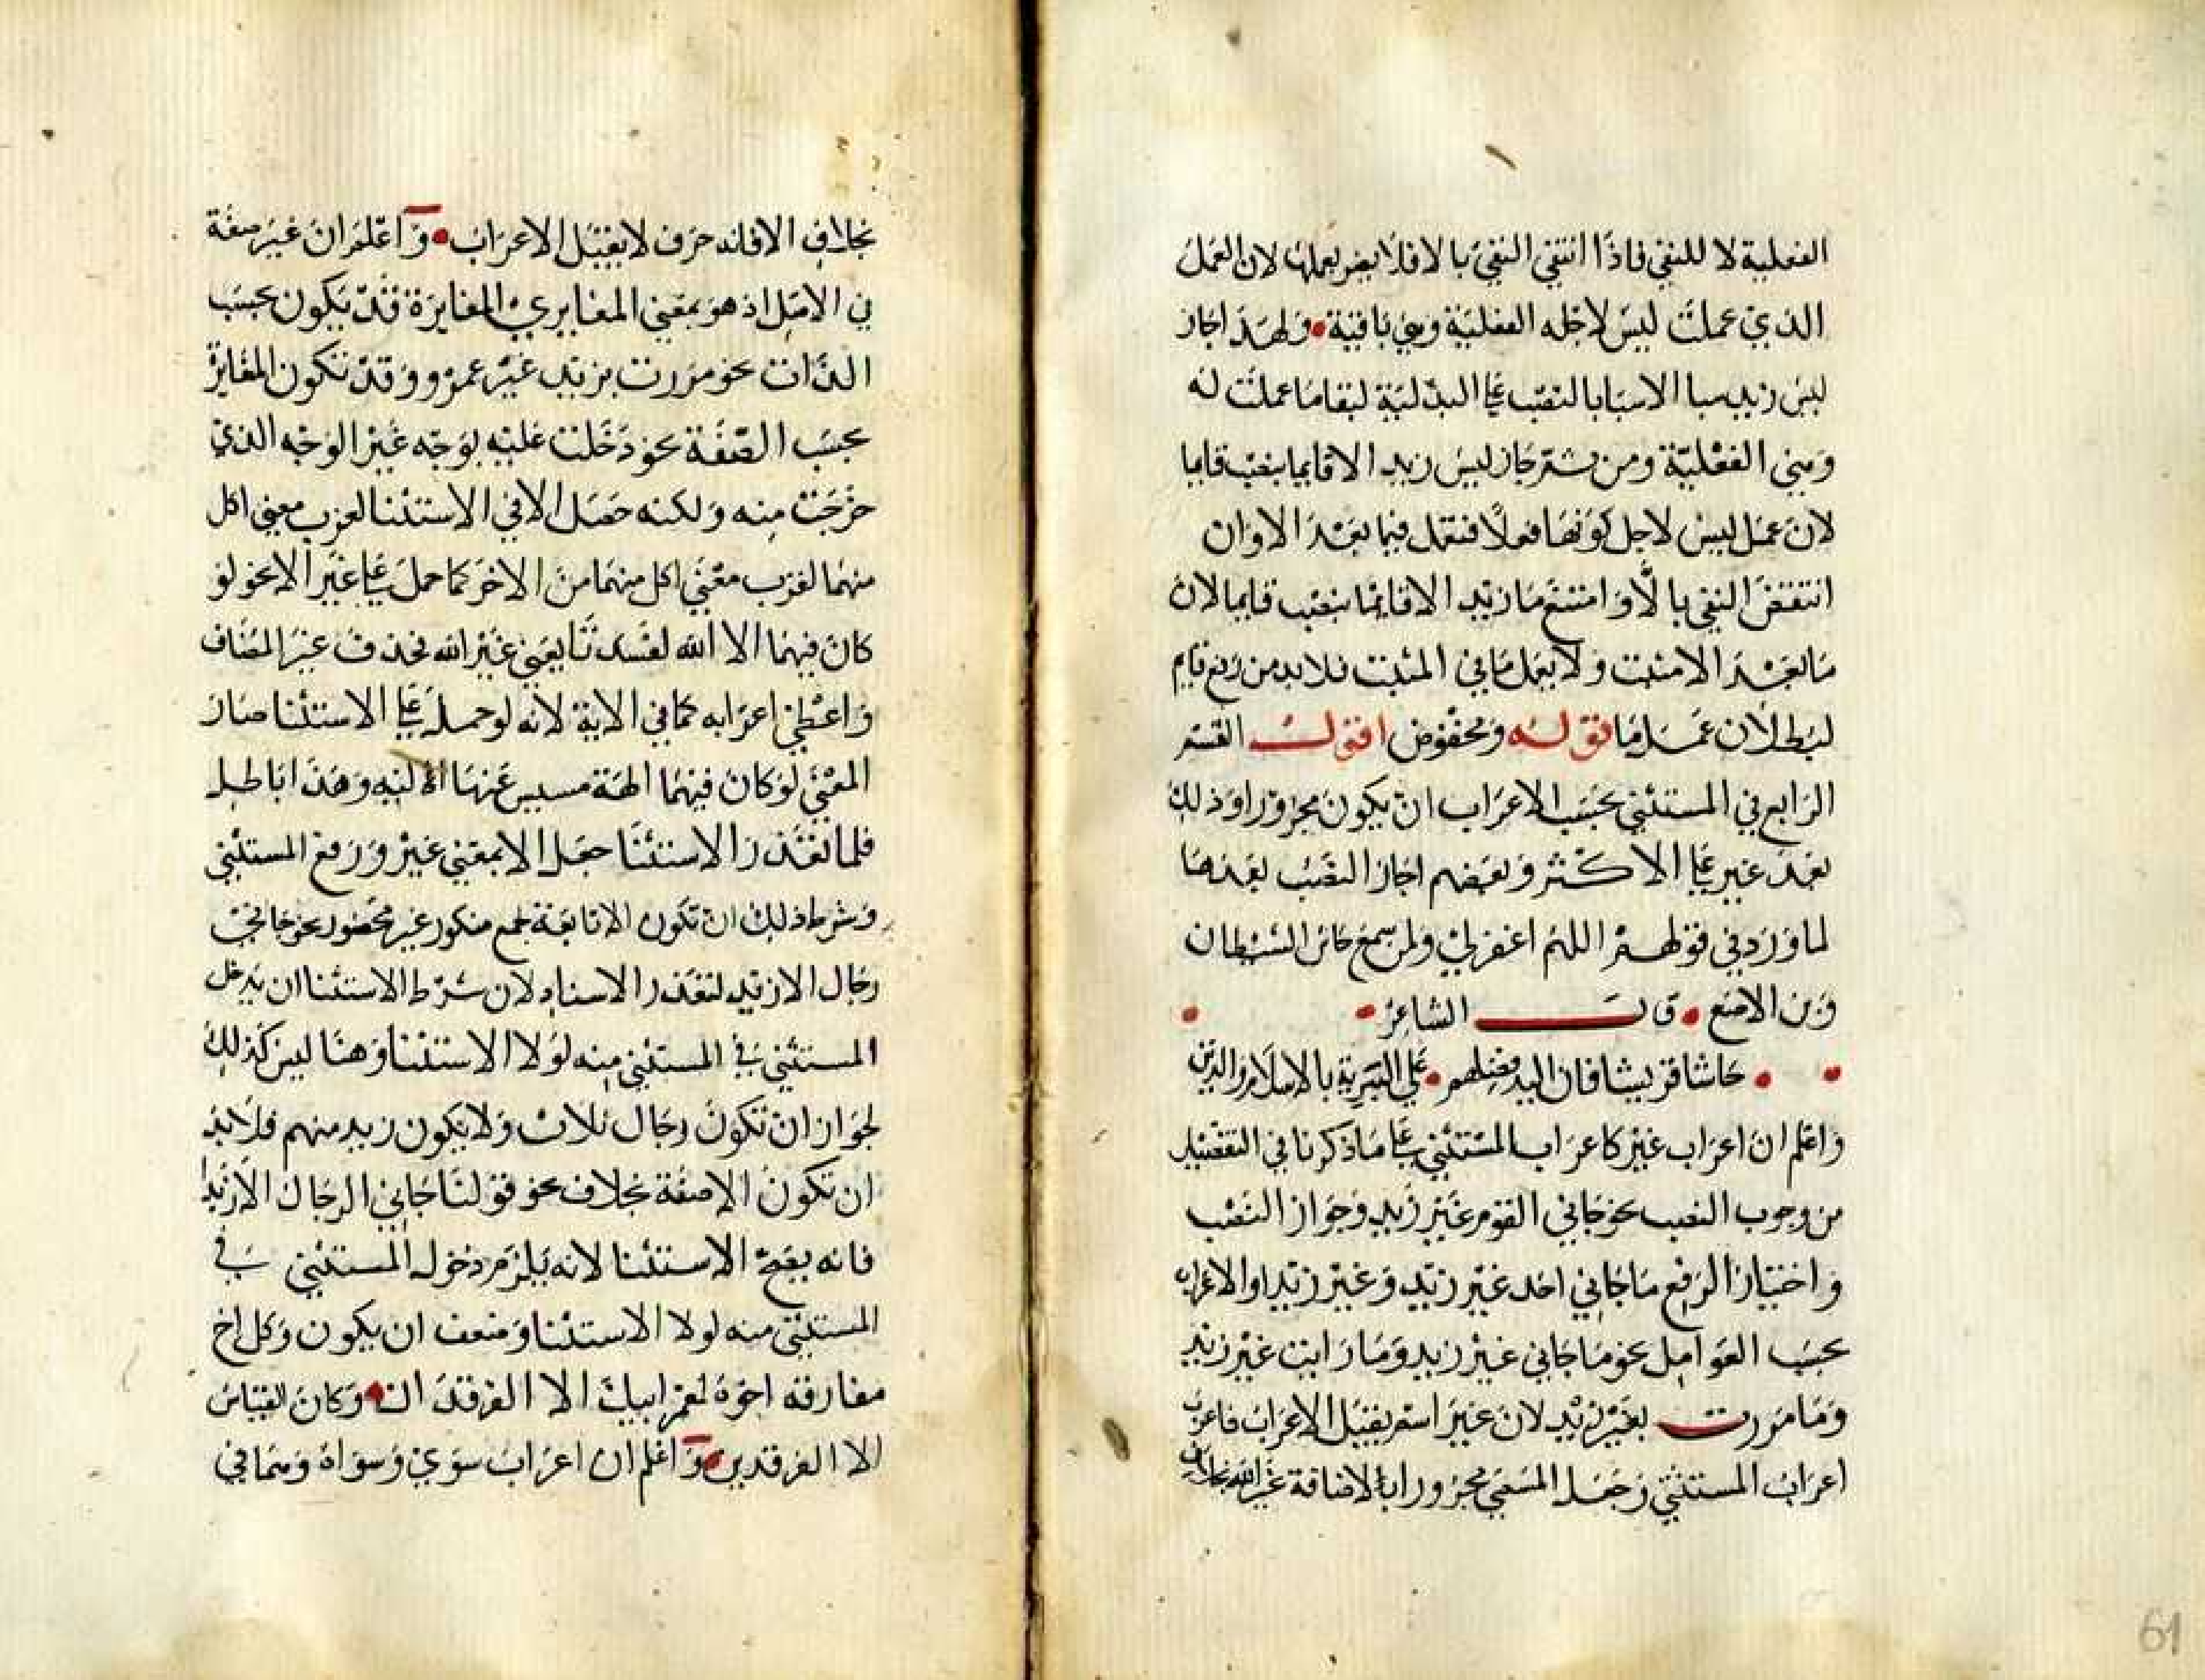 الفعلية لا للنفي فاذا انتقي النفي بالا فلا يضر بعملها لان العمل
الذي عملت ليس لاجله الفعلية وهي باقية ولهذا جاز
ليس زيد سيا الا سيا بالنصب علي البدلية لبقا ما عملت له
وهي الفعلية ومن ثم جاز ليس زيد الا قايما بنصب قايما
لان عمل ليس لاجل كونها فعلا فتعمل فيما بعد الا وان
انتقض النفي بالا وامتنع ما زيد الا قايما بنصب قايما لان
ما بعد الا مثبت ولا يعمل ما في المثبت فلا بد من رفع قايم
لبطلان عمل ما قوله ومخفوض اقول القسم
الرابع في المستثني بحسب الاعراب ان يكون مجرورا وذلك
بعد غير علي الاكثر وبعضهم اجاز النصب بعدها
لما ورد في قولهم اللهم اغفر لي ولمن سمع حاش الشيطان
وبن الاصبع قال الشاعر
حاشا قريشا فان الله فضلهم علي البرية بالاسلام والدين
واعلم ان اعراب غير كاعراب المستثني علي ما ذكرنا في التفصيل
من وجوب النصب نحو جاني القوم غير زيد وجواز النصب
واختيار الرفع ما جاني احد غير زيد وغير زيد او الاعراب
بحسب العوامل نحو ما جاني غير زيد وما رايت غير زيد
وما مررت بغير زيد لان غير اسم يقبل الاعراب فاعرب
اعراب المستثني وجعل المستثني مجرورا بالاضافة
بخلاف الا فانه حرف لا يقبل الاعراب واعلم ان غير صفة
في الاصل اذ هو بمعني المغاير ي المغايرة قد يكون بحسب
الذات نحو مررت بزيد غير عمرو وقد تكون المغايرة
بحسب الصفة نحو دخلت عليه بوجه غير الوجه الذي
خرجت منه ولكنه حمل الا في الاستثنا لقرب معني اكل
منهما لقرب معني اكل منهما من الاخر كما حمل علي غير الا نحو لو
كان فيهما الا الله لفسدتا يعني غير الله فحذف غير المضاف
واعطي اعرابه كما في الاية لانه لو حمل علي الاستثنا صار
المعني لو كان فيهما الهة عنها وهذا باطل
فلما تعذر الاستثنا جعل الا بمعني غير ورفع المستثني
وشرط ذلك ان تكون الا تابعة لجمع منكور غير محصور نحو جاني
رجال الا زيد لتعذر الاسناد لان شرط الاستثنا ان يدخل
المستثني في المستثني منه لولا الاستثنا وهنا ليس كذلك
لجواز ان تكون رجال ثلاث ولا يكون زيد منهم فلا بد
ان تكون الا صفة بخلاف نحو قولنا جاني الرجال الا زيدا
فانه يصح الاستثنا لانه يلزم دخول المستثني في
المستثني منه لولا الاستثنا وضعف ان يكون وكل اخ
مفارقه اخوه لعمر ابيك الا الفرقدان وكان القياس
الا الفرقدين واعلم ان اعراب سوي وسواه وهما في
61